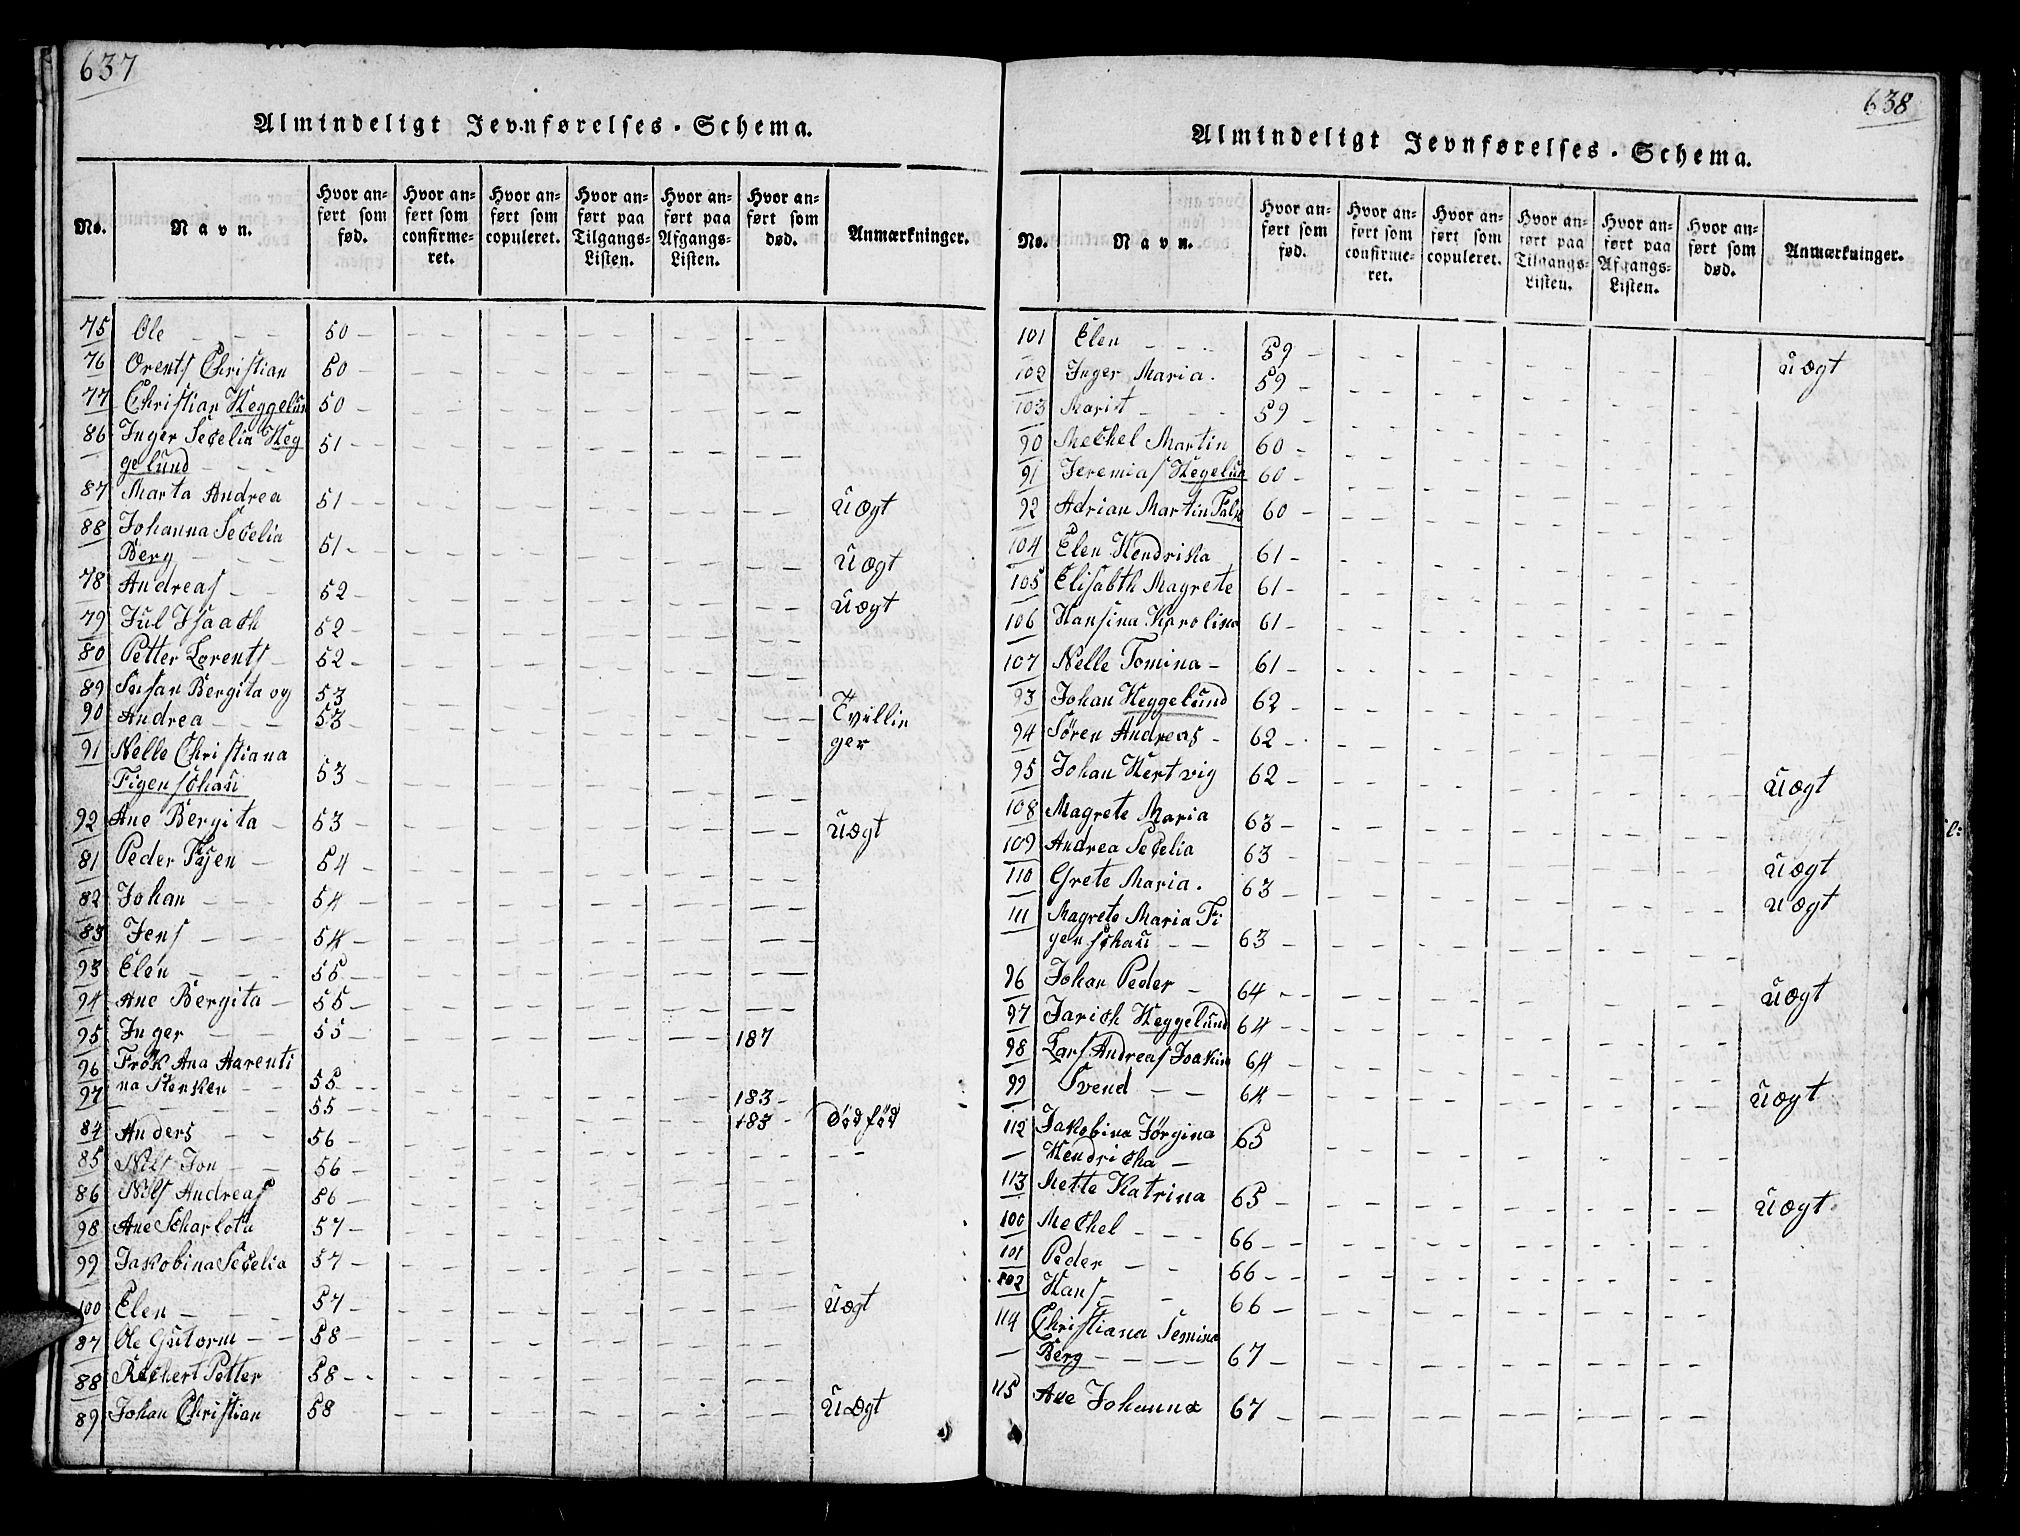 637
Almindeligt Jevnførelses-Schema.
No. Navn. Hvor anført som fød. Hvor anført som confirmeret. Hvor anført som copuleret. Hvor anført paa Tilgangs-Listen. Hvor anført paa Afgangs-Listen. Hvor anført som død. Anmærkninger.
75 Ole 50
76 Orents Christian 50
77 Christian Heggelun 50
86 Inger Secelia Heg
gelund 51
87 Marta Andrea 51 Uægt
88 Johanna Secelia
Berg 51 Uægt
78 Andreas 52 Uægt
79 Jul Isaach 52
80 Petter Lorents 52
89 Susan Bergita og 53
90 Andrea 53 Tvillin
ger
91 Nelle Christiana
Figenschau 53
92 Ane Bergita 53 Uægt
81 Peder 54
82 Johan 54
83 Jens 54
93 Elen 55
94 Ane Bergita 55
95 Inger 55 187
96 Frök Ana Aarenti
97 na Stenken 55 183
55 183 Dødfød
84 Anders 56
85 Nils Jon 56
86 Nils Andreas 56
98 Ane Scharlota 57
99 Jakobina Secelia 57
100 Elen 57 Uægt
87 Ole Gutorm 58
88 Rechert Petter 58
89 Johan Christian 58 Uægt
638
Almindeligt Jevnførelses-Schema.
No. Navn. Hvor anført som fød. Hvor anført som confirmeret. Hvor anført som copuleret. Hvor anført paa Tilgangs-Listen. Hvor anført paa Afgangs-Listen. Hvor anført som død. Anmærkninger.
101 Elen 59 Uægt
102 Inger Maria. 59
103 Marit 59
90 Mechel Martin 60
91 Jeremias Hegelun 60
92 Adrian Martin 60
104 Elen Hendrika 61
105 Elisabth Magrete 61
106 Hansina Karolina 61
107 Nelle Tomina 61
93 Johan Heggelund 62
94 Sören Andreas 62
95 Johan Hertvig 62 Uægt
108 Magrete Maria 63
109 Andrea Secelia 63 Uægt
110 Grete Maria. 63 Uægt
111 Magrete Maria Fi
genschau 63
96 Johan Peder 64 Uægt
97 Jarich Heggelund 64
98 Lars Andreas Joakim 64
99 Svend 64 Uægt
112 Jakobina Jörgina
Hendricha 65
113 Mette Katrina 65 Uægt
100 Mechel 66
101 Peder 66
102 Hans 66
114 Christiana Semina
Berg 67
115 Ane Johanna 67